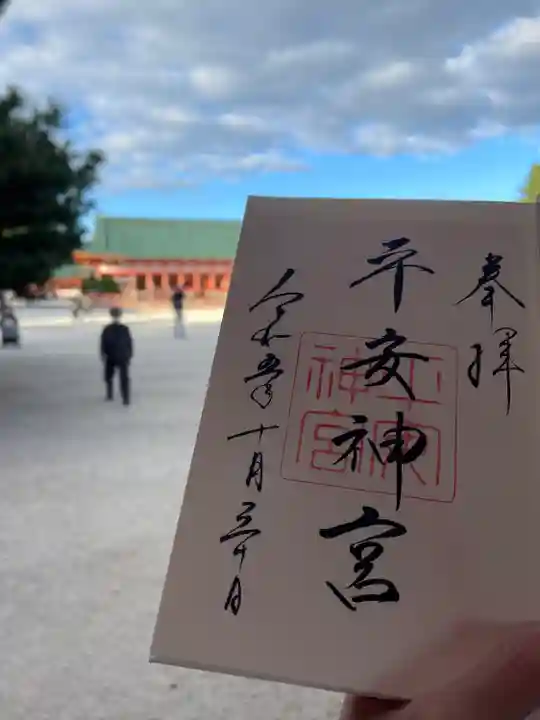 奉拝
平安神宮
令和五年十月三十日
平安神宮